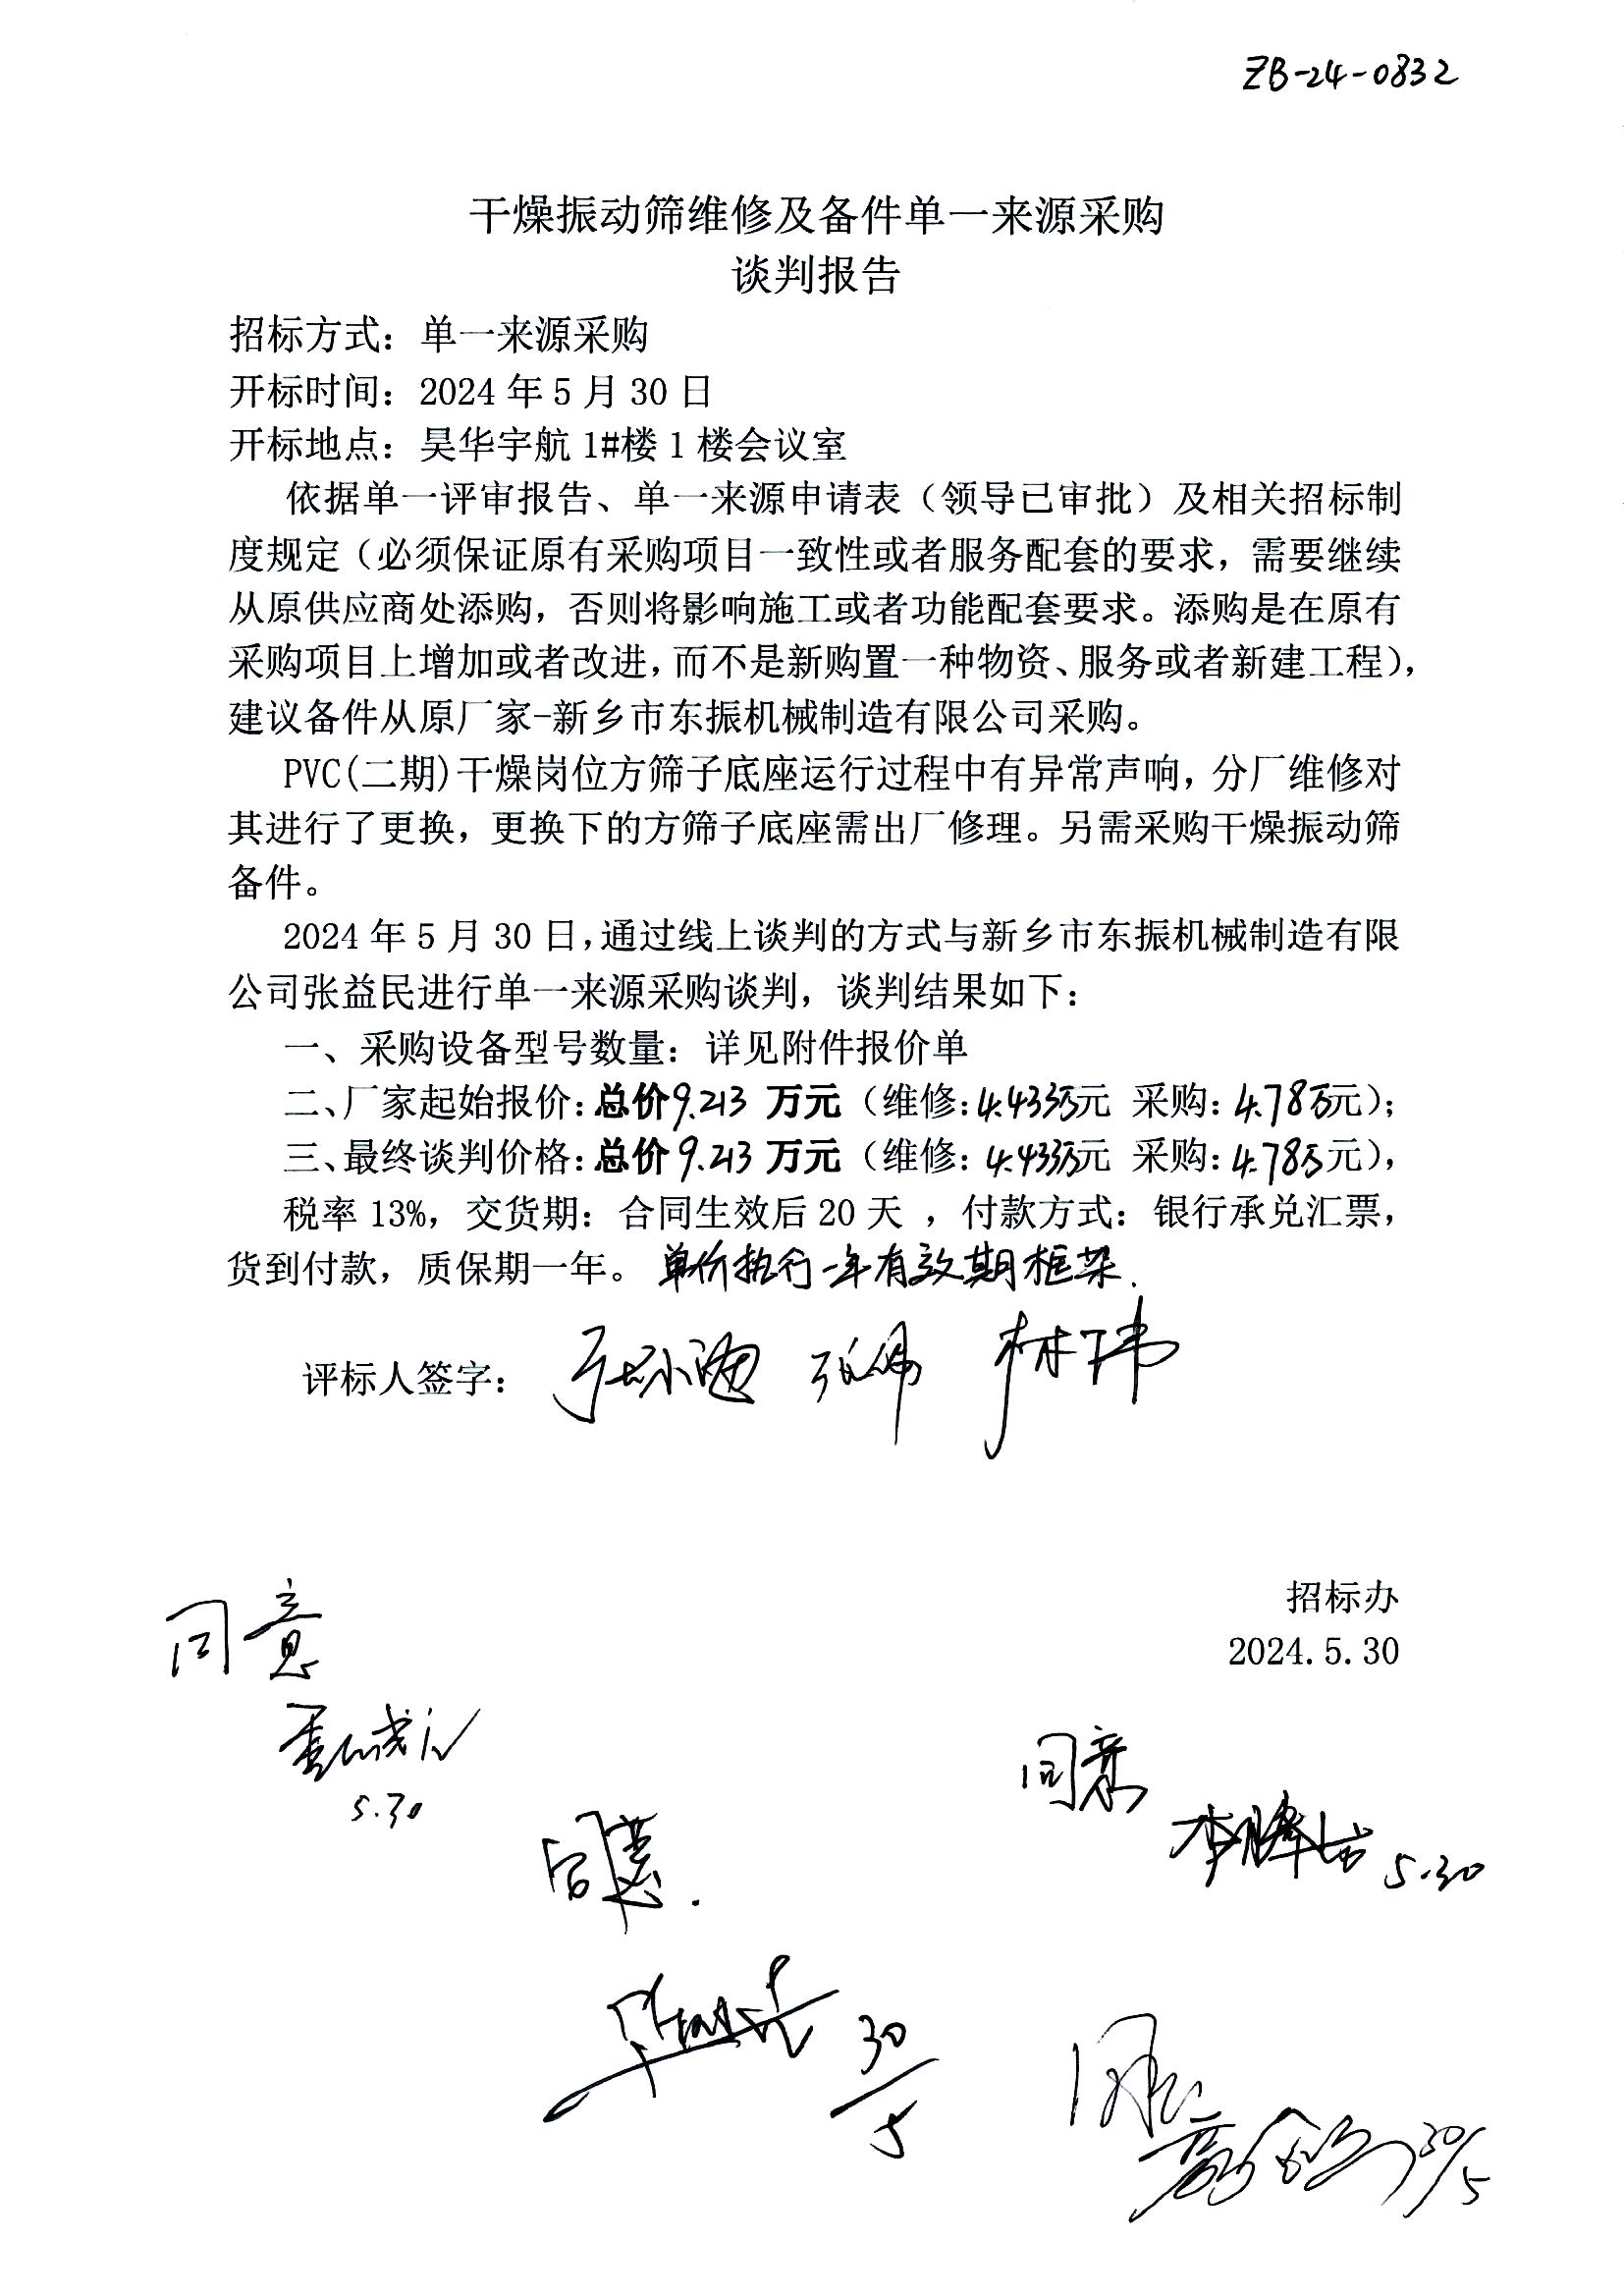 ZB-24-0832
干燥振动筛维修及备件单一来源采购
谈判报告
招标方式：单一来源采购
开标时间：2024年5月30日
开标地点：昊华宇航1#楼1楼会议室
依据单一评审报告、单一来源申请表（领导已审批）及相关招标制
度规定（必须保证原有采购项目一致性或者服务配套的要求，需要继续
从原供应商处添购，否则将影响施工或者功能配套要求。添购是在原有
采购项目上增加或者改进，而不是新购置一种物资、服务或者新建工程），
建议备件从原厂家-新乡市东振机械制造有限公司采购。
PVC(二期)干燥岗位方筛子底座运行过程中有异常声响，分厂维修对
其进行了更换，更换下的方筛子底座需出厂修理。另需采购干燥振动筛
备件。
2024年5月30日，通过线上谈判的方式与新乡市东振机械制造有限
公司张益民进行单一来源采购谈判，谈判结果如下：
一、采购设备型号数量：详见附件报价单
二、厂家起始报价：总价9.213 万元（维修：4.433万元 采购：4.78万元）；
三、最终谈判价格：总价9.213 万元（维修：4.433万元 采购：4.78万元），
税率13%，交货期：合同生效后20天 ，付款方式：银行承兑汇票，
货到付款，质保期一年。单价执行一年有效期框架.
评标人签字：
招标办
2024.5.30
同意
5.30
同意
5.30
同意.
30/5
同意
30/5